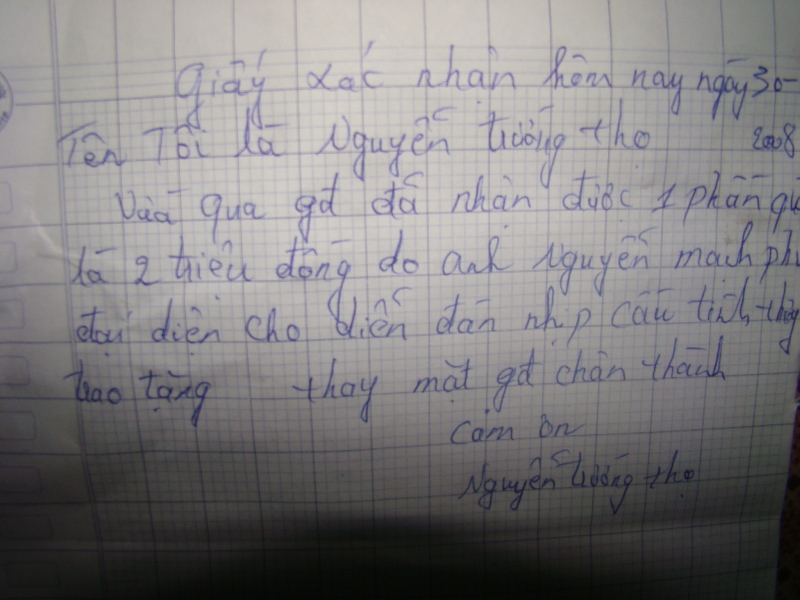 Giấy xác nhận hôm nay ngày 30-
Tên Tôi là Nguyễn trường thọ 2008
Vừa qua gđ đã nhận được 1 phần
là 2 triệu đồng do anh Nguyễn mạch
đại diện cho diễn đàn nhịp cầu tình
trao tặng thay mặt gđ chân thành
cảm ơn
Nguyễn trường thọ